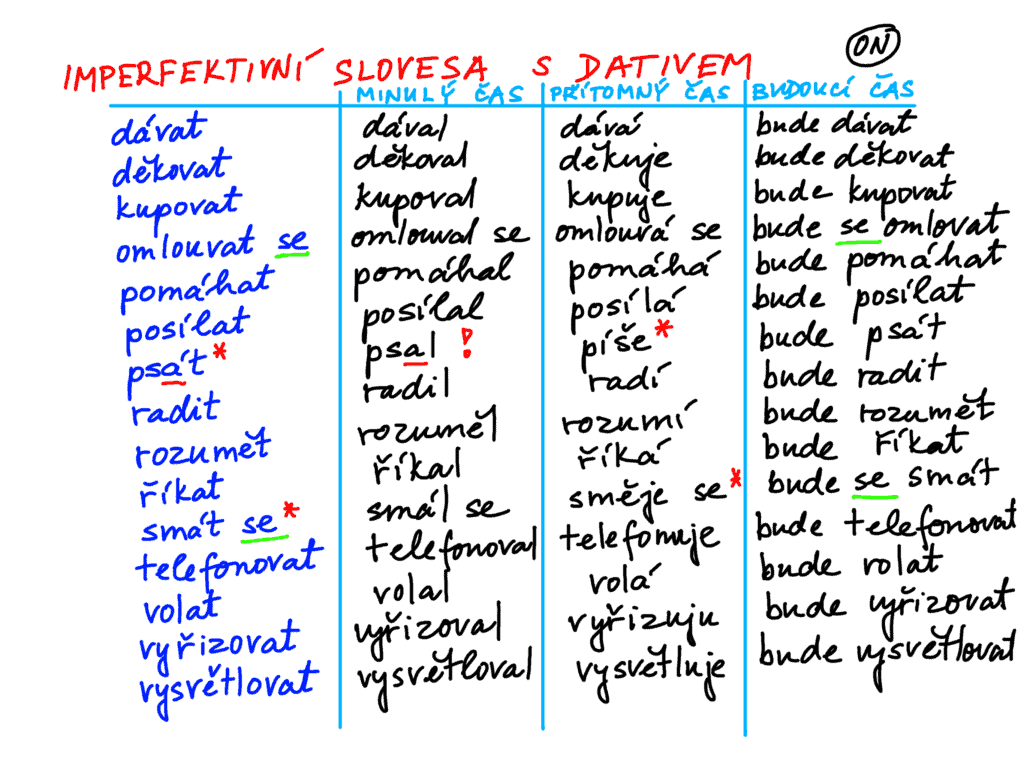 ON
IMPERFEKTIVNÍ SLOVESA S DATIVEM
MINULÝ ČAS PŘÍTOMNÝ ČAS BUDOUCÍ ČAS
dávat dával dává bude dávat
děkovat děkoval děkuje bude děkovat
kupovat kupoval kupuje bude kupovat
omlouvat se omlouval se omlouvá se bude se omlovat
pomáhat pomáhal pomáhá bude pomáhat
posílat posílal posílá bude posílat
psát* psal ! píše* bude psát
radit radil radí bude radit
rozumět rozuměl rozumí bude rozumět
říkat říkal říká bude říkat
smát se* smál se směje se* bude se smát
telefonovat telefonoval telefonuje bude telefonovat
volat volal volá bude volat
vyřizovat vyřizoval vyřizuju bude vyřizovat
vysvětlovat vysvětloval vysvětluje bude vysvětlovat